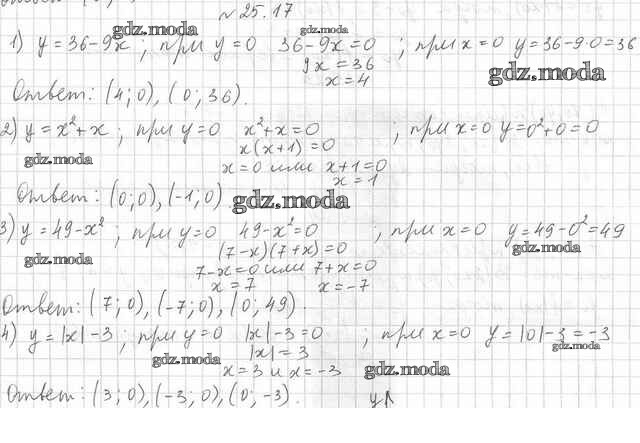 №25.17
gdz.moda
gdz.moda
1) y = 36-9x ; при y=0 36-9x=0 ; при x=0 y=36-9·0=36
9x = 36
gdz.moda
x = 4
Ответ: (4;0), (0;36).
2) y = x²+x ; при y=0 x²+x=0 ; при x=0 y=0²+0=0
x(x+1)=0
gdz.moda
x=0 или x+1=0
x = 1
Ответ: (0;0), (-1;0)
gdz.moda
3) y = 49-x² ; при y=0 49-x²=0 ; при x=0 y=49-0²=49
(7-x)(7+x)=0
gdz.moda
gdz.moda
7-x=0 или 7+x=0
x=7 x=-7
Ответ: (7;0), (-7;0), (0;49).
4) y=|x|-3 ; при y=0 |x|-3=0 ; при x=0 y=|0|-3=-3
gdz.moda
|x|=3
gdz.moda
x=3 и x=-3
gdz.moda
Ответ: (3;0), (-3;0), (0;-3).
y